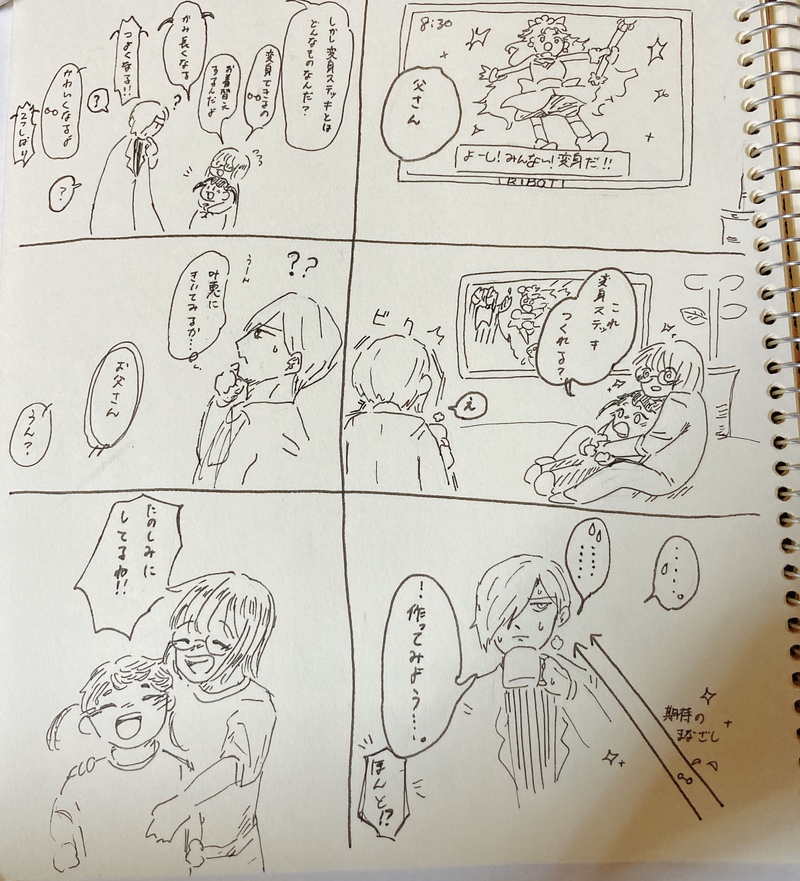 8:30
父さん
よーし!みんな!変身だ!!
RIBOT!
これ
変身ステッキ
つくれる?
ビクッ
え
……
……
期待の
まなざし
!作ってみよう…。
ほんと!?
しかし変身ステッキとは
どんなものなんだ?
変身できるの
お着替え
するんだよ
?
かみ長くなる
つよくなる!!
?
かわいくなるよ
?
??
うーん
きいてみるか…。
お父さん
うん?
たのしみに
してるね!!